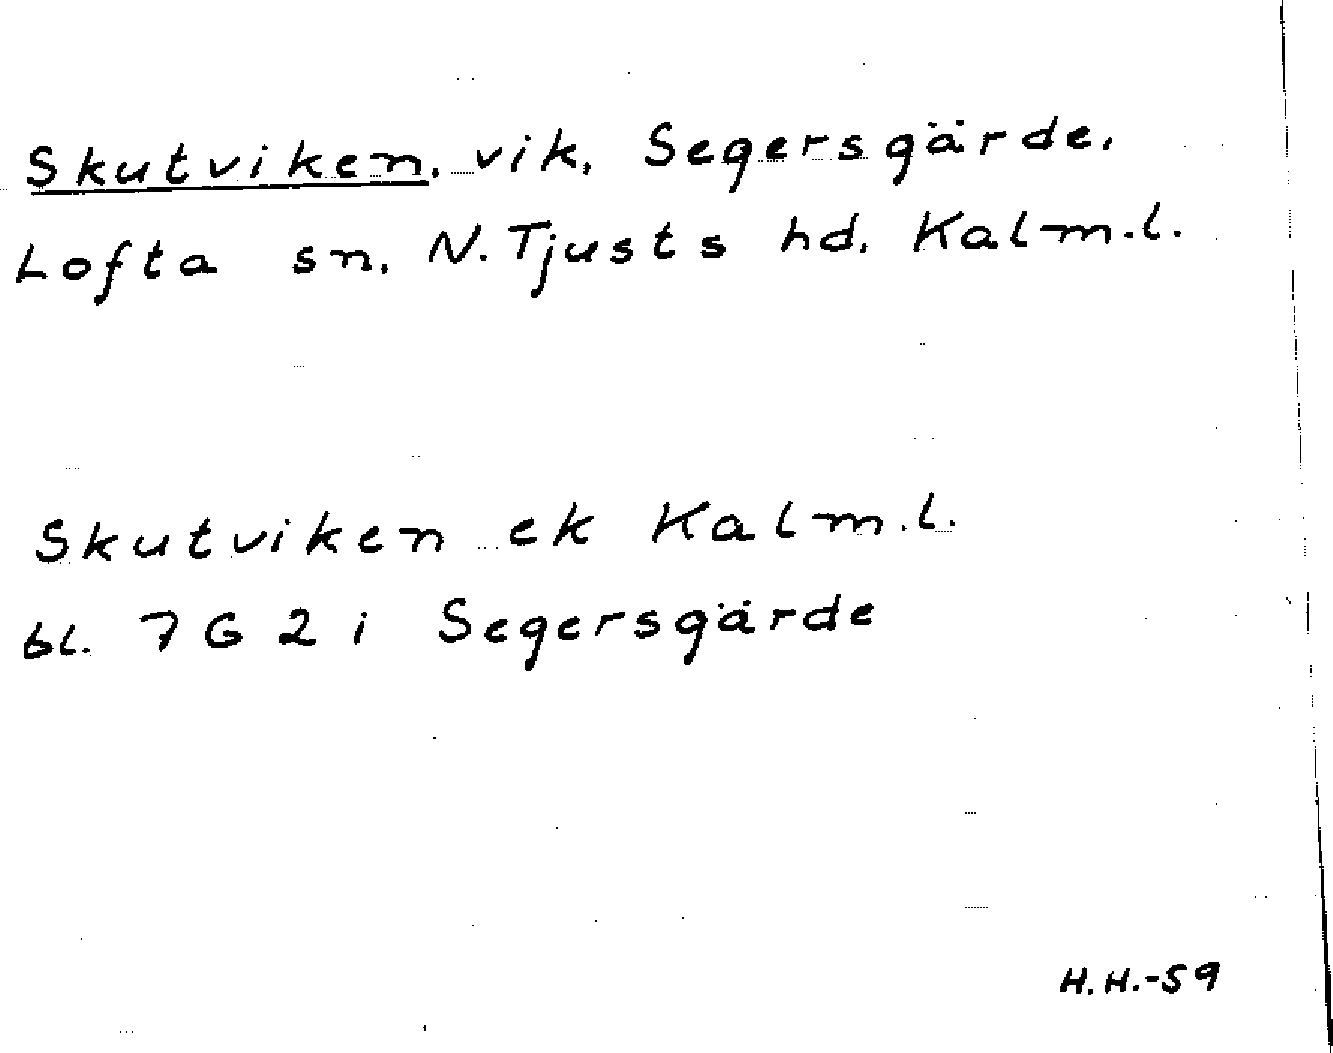 Skutviken, vik, Segersgärde,
Lofta sn, N. Tjusts hd, Kalm.l.
Skutviken ek Kalm.l.
bl. 7 G 2 i Segersgärde
H.H.-59